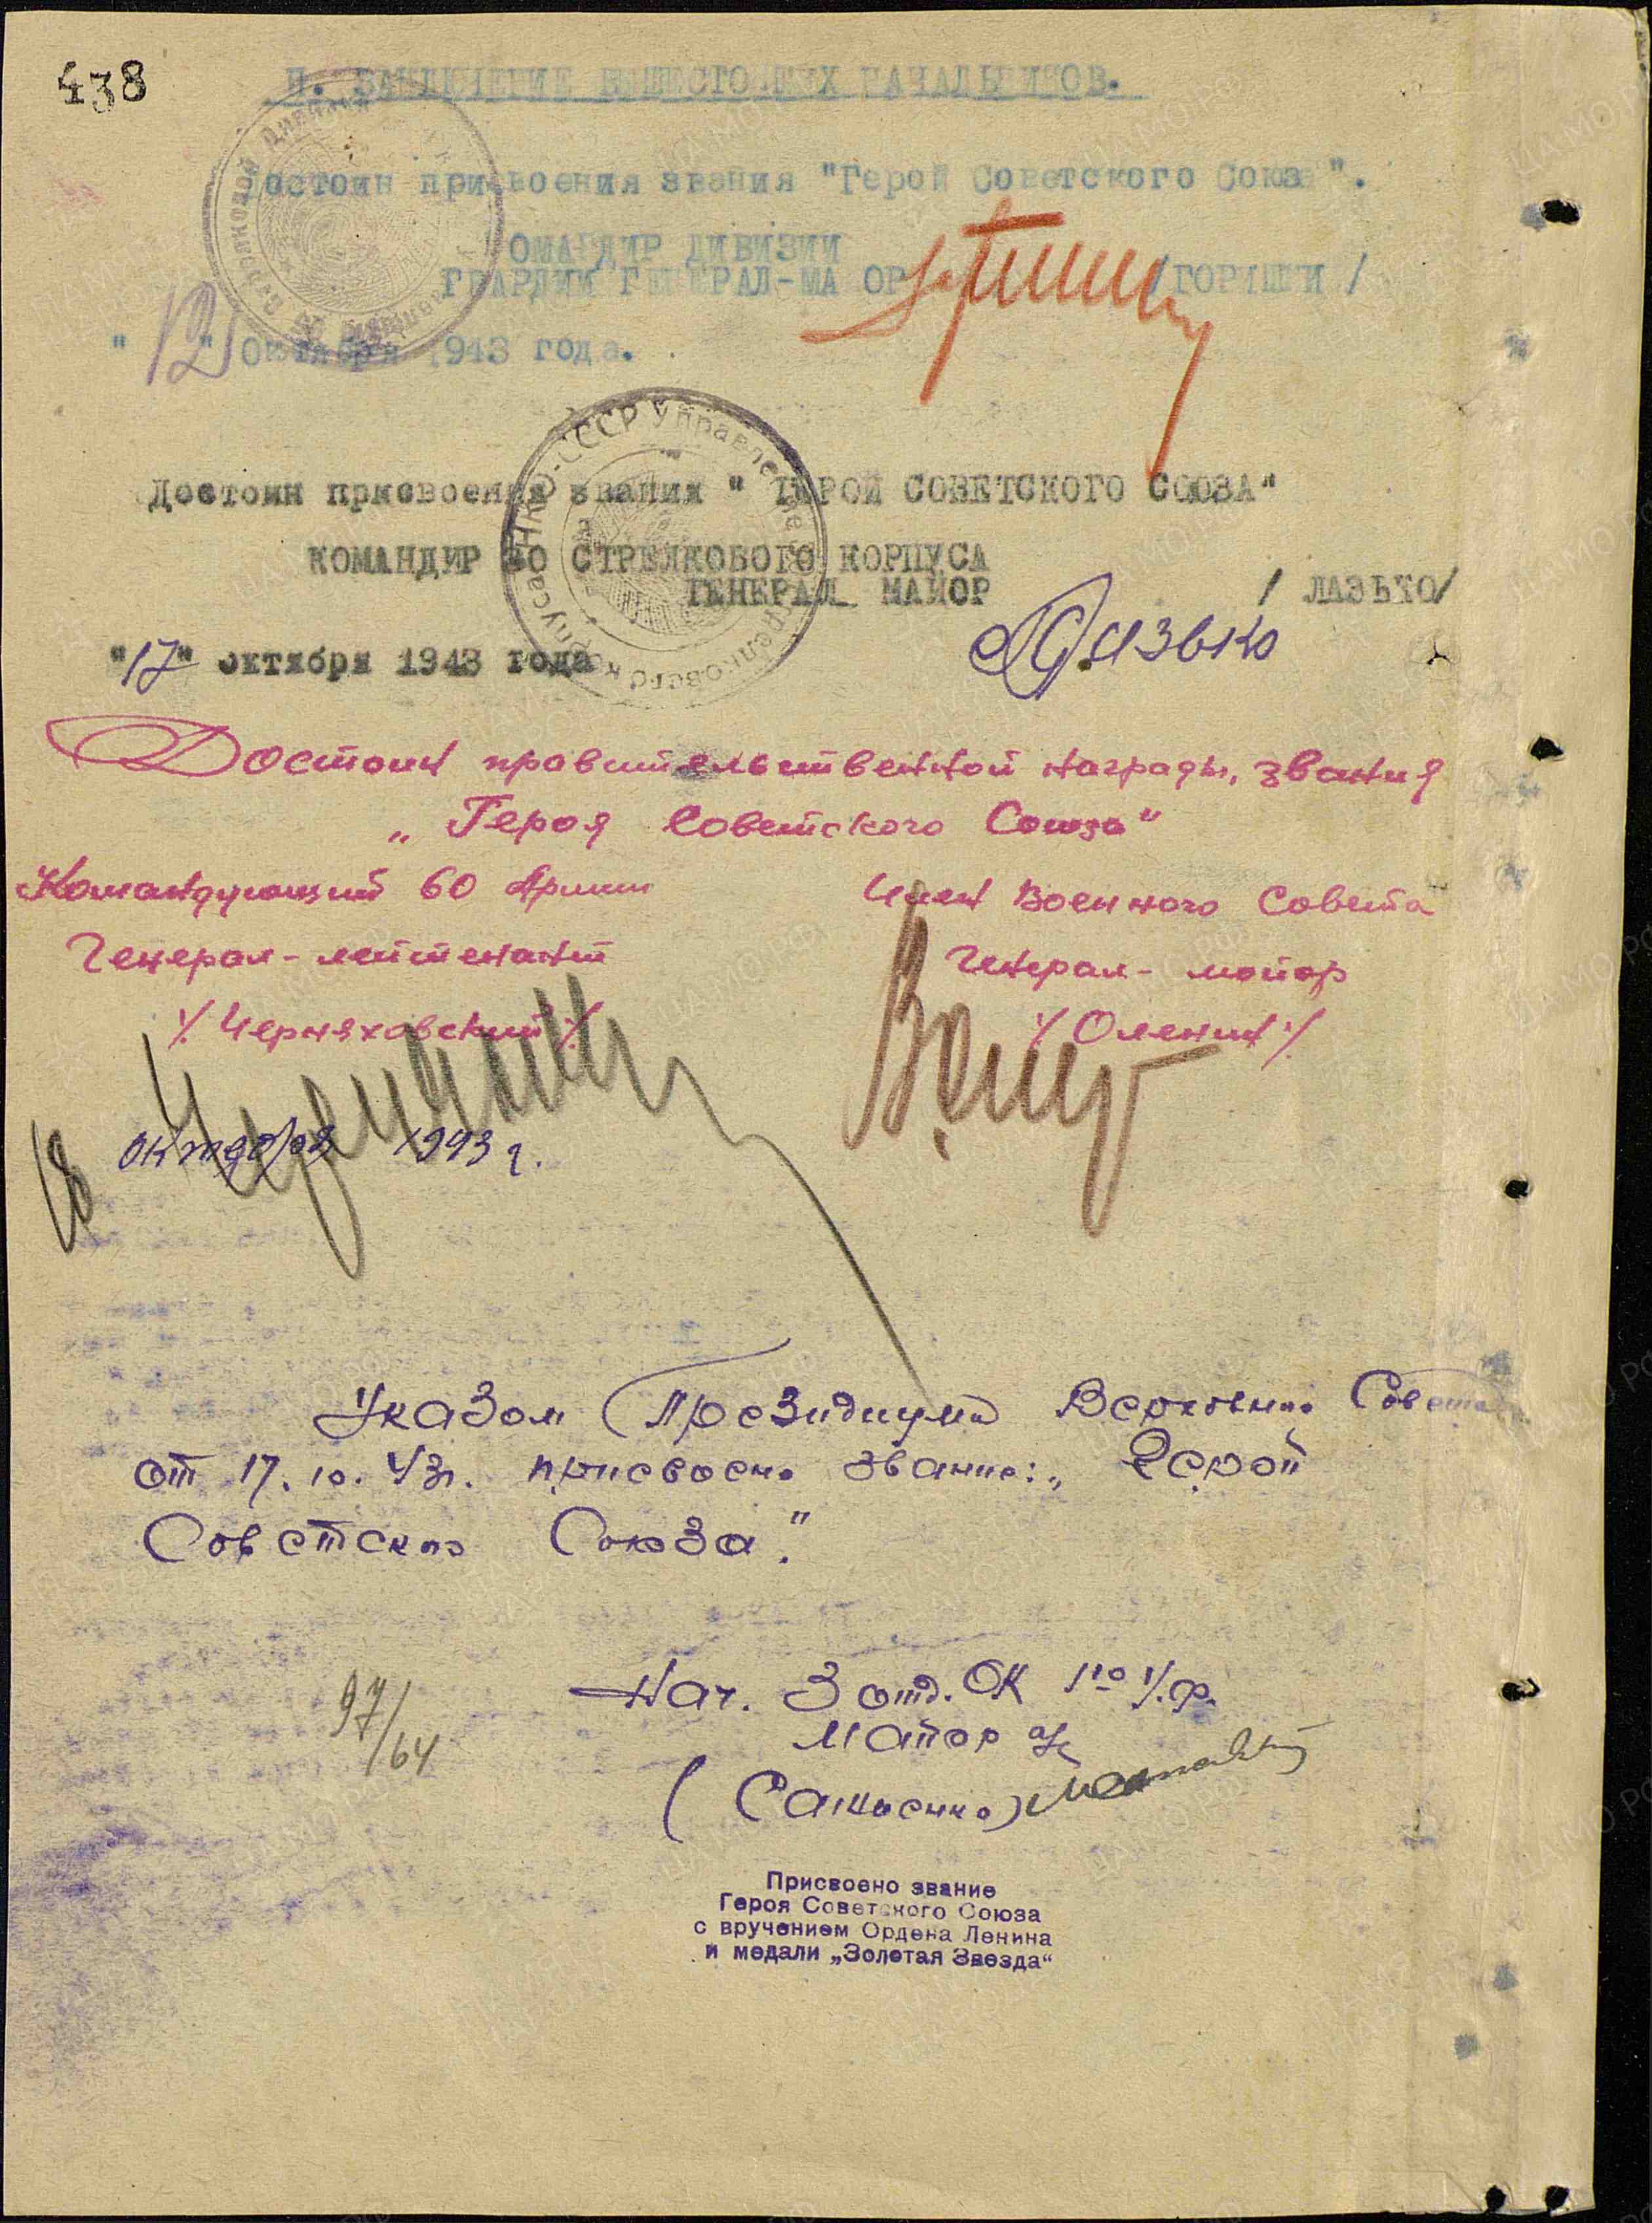 438
II. ЗАКЛЮЧЕНИЕ ВЫШЕСТОЯЩИХ НАЧАЛЬНИКОВ.
Достоин присвоения звания "Герой Советского Союза".
КОМАНДИР ДИВИЗИИ
ГВАРДИИ ГЕНЕРАЛ-МАЙОР /ГОРИШНИЙ/
"12" октября 1943 года.
Достоин присвоения звания "ГЕРОЙ СОВЕТСКОГО СОЮЗА"
КОМАНДИР 30 СТРЕЛКОВОГО КОРПУСА
ГЕНЕРАЛ МАЙОР / ЛАЗЬКО/
Лазько
"17" октября 1943 года
Достоин правительственной награды, звания
„Героя Советского Союза"
Командующий 60 Армии Член Военного Совета
Генерал-лейтенант Генерал-майор
/Черняховский/ /Оленин/
18 октября 1943 г.
Указом Президиума Верховного Совета
от 17.10.43г. присвоено звание: „Герой
Советского Союза."
97/64
Нач. 3 отд. ОК 1го У.ф.
Майор а/с
(Самосенко)
Присвоено звание
Героя Советского Союза
с вручением Ордена Ленина
и медали „Золотая Звезда"